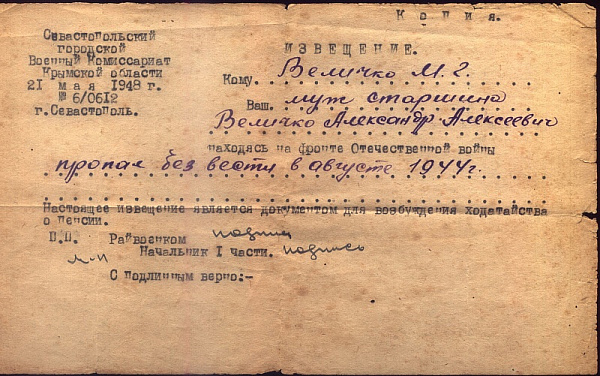 Копия.
Севастопольский
городской
Военный Комиссариат
Крымской области
21 мая 1948 г.
№ 6/0612
г.Севастополь.
ИЗВЕЩЕНИЕ.
Кому Величко М. Г.
Ваш муж старшина
Величко Александр Алексеевич
находясь на фронте Отечественной войны
пропал без вести в августе 1944 г.
Настоящее извещение является документом для возбуждения ходатайства
о пенсии.
П.П. Райвоенком подпись
Начальник I части. подпись
М.П.
С подлинным верно:-